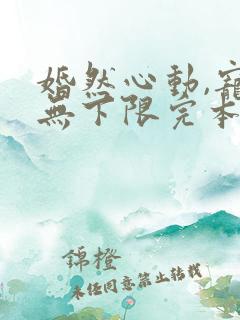 婚然心動,寵
無下限完本
錦橙
未經同意禁止轉載